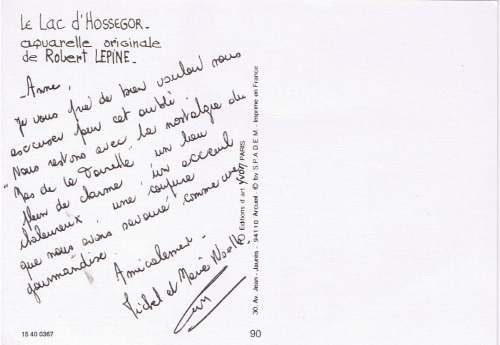 Le Lac d'HOSSEGOR -
aquarelle originale
de Robert LEPINE -
- Anne,
Je vous prie de bien vouloir nous
excuser pour cet oubli.
Nous restons avec la nostalgie du
"Mas de la " un lieu
plein de charme un acceuil
chaleureux une confiture
que nous avons savouré comme une
gourmandise
Amicalement -
Michel et Marie Noelle
© Editions d'art yvon PARIS
30, Av. Jean - Jaurès - 94110 Arcueil - © by S.P.A.D.E.M. - Imprimé en France
15 40 0367
90